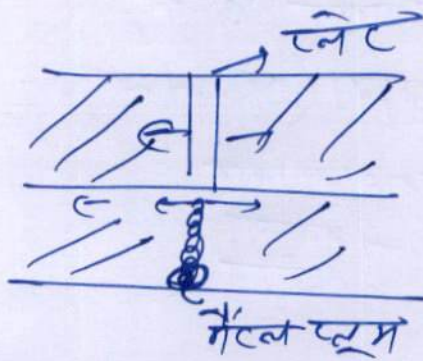 प्लेट
मैंटल प्लूम